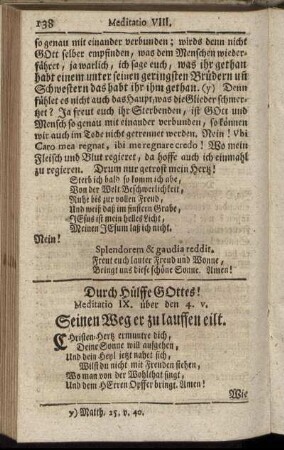 138 Meditatio VIII.
so genau mit einander verbunden; wirds denn nicht
GOtt selber empfinden, was dem Menschen wieder-
fähret, ja warlich, ich sage euch, was ihr gethan
habt einem unter seinen geringsten Brüdern un
Schwestern das habt ihr ihm gethan. (y) Denn
fühlet es nicht auch das Haupt, was die Glieder schmer-
tzet? Ja freut euch ihr Sterbenden, ist GOtt und
Mensch so genau mit einander verbunden, so können
wir auch im Tode nicht getrennet werden. Nein! Vbi
Caro mea regnat, ibi me regnare credo! Wo mein
Fleisch und Blut regieret, da hoffe auch ich einmahl
zu regieren. Drum nur getrost mein Hertz!
Sterb ich bald so komm ich abe,
Von der Welt Beschwerlichkeit,
Ruhe bis zur vollen Freud,
Und weiß daß im finstern Grabe,
JEsus ist mein helles Licht,
Meinen JEsum laß ich nicht.
Nein!
Splendorem & gaudia reddit.
Freut euch lauter Freud und Wonne,
Bringt uns diese schöne Sonne. Amen!
Durch Hülffe GOttes!
Meditatio IX. über den 4. v.
Seinen Weg er zu lauffen eilt.
CHristen-Hertz ermuntre dich,
Deine Sonne will aufgehen,
Und dein Heyl jetzt nahet sich,
Wilst du nicht mit Freuden stehen,
Wo man von der Wohlthat singt,
Und dem HErren Opffer bringt. Amen!
Wie
y) Matth. 25. v. 40.